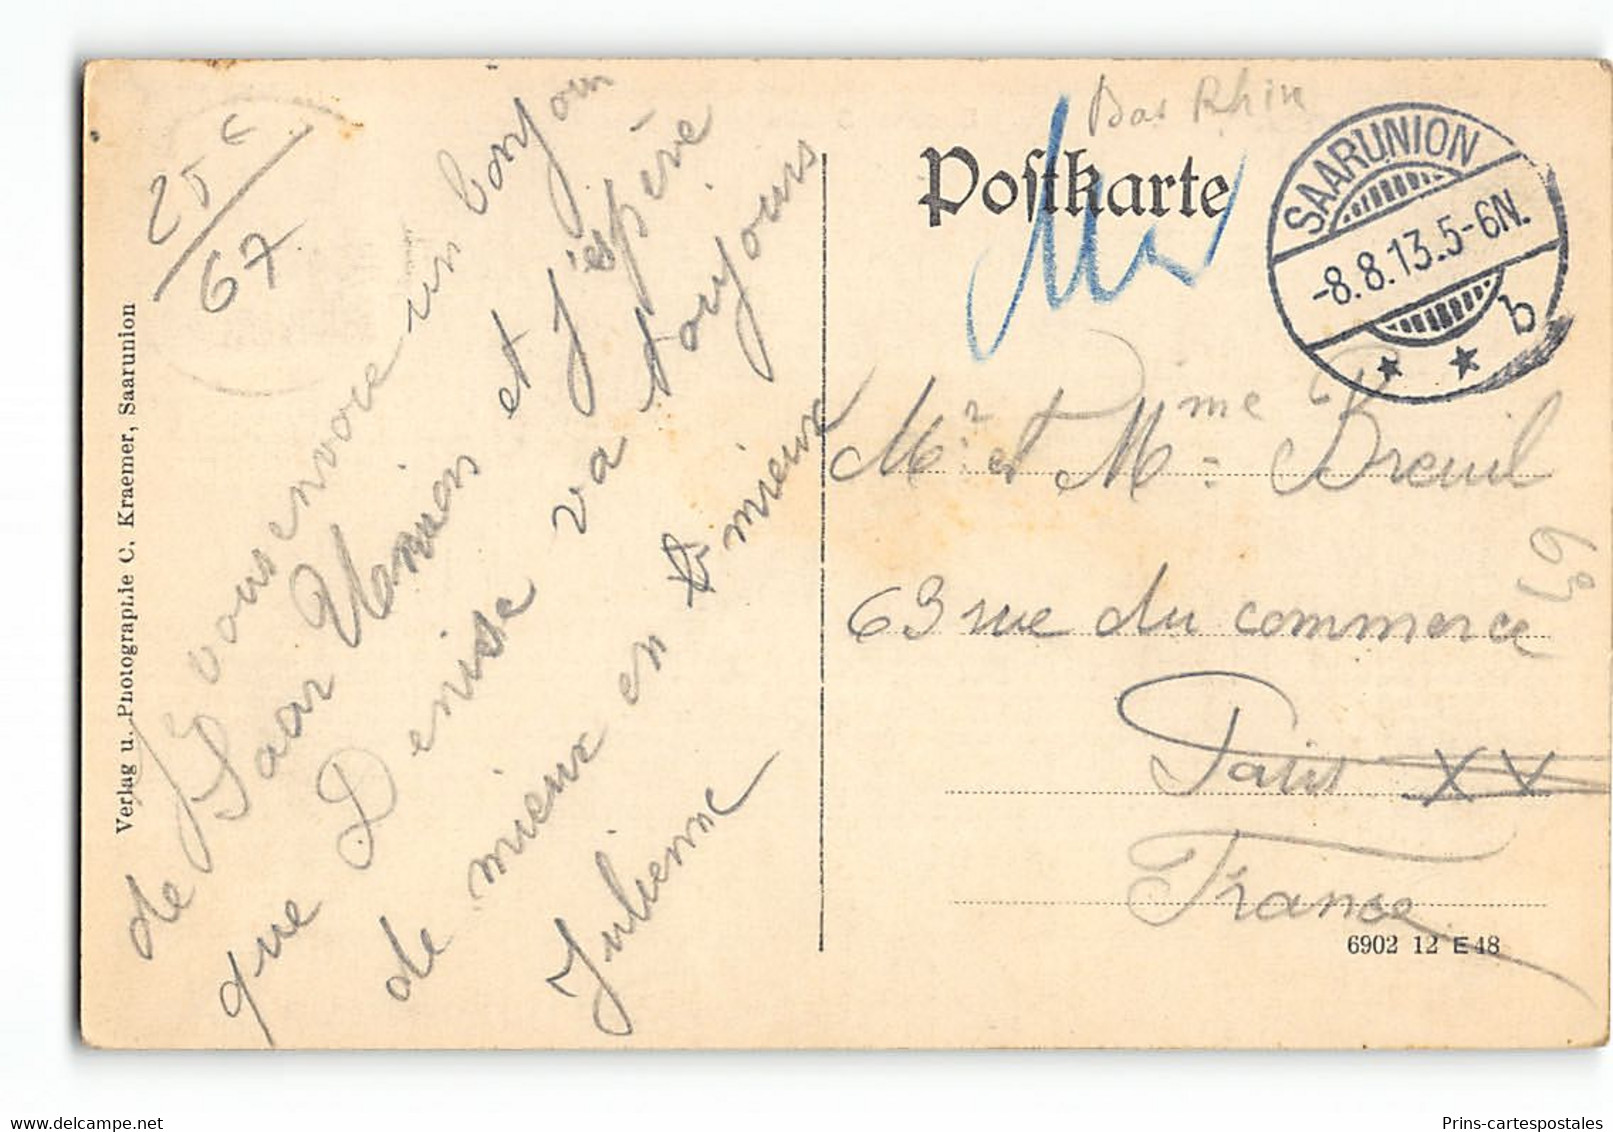 Bas Rhin
Postkarte
SAARUNION
-8.8.13.5-6N.
* * b
25 €
67
Verlag u. Photographie C. Kraemer, Saarunion
Je vous envoie un bonjour
de Saar Union et j'espère
que Denise va toujours
de mieux en mieux
Julienne
Mr et Mme Breuil
63 rue du commerce
63
Paris XV
France
6902 12 E 48
www.delcampe.net
Prins-cartespostales